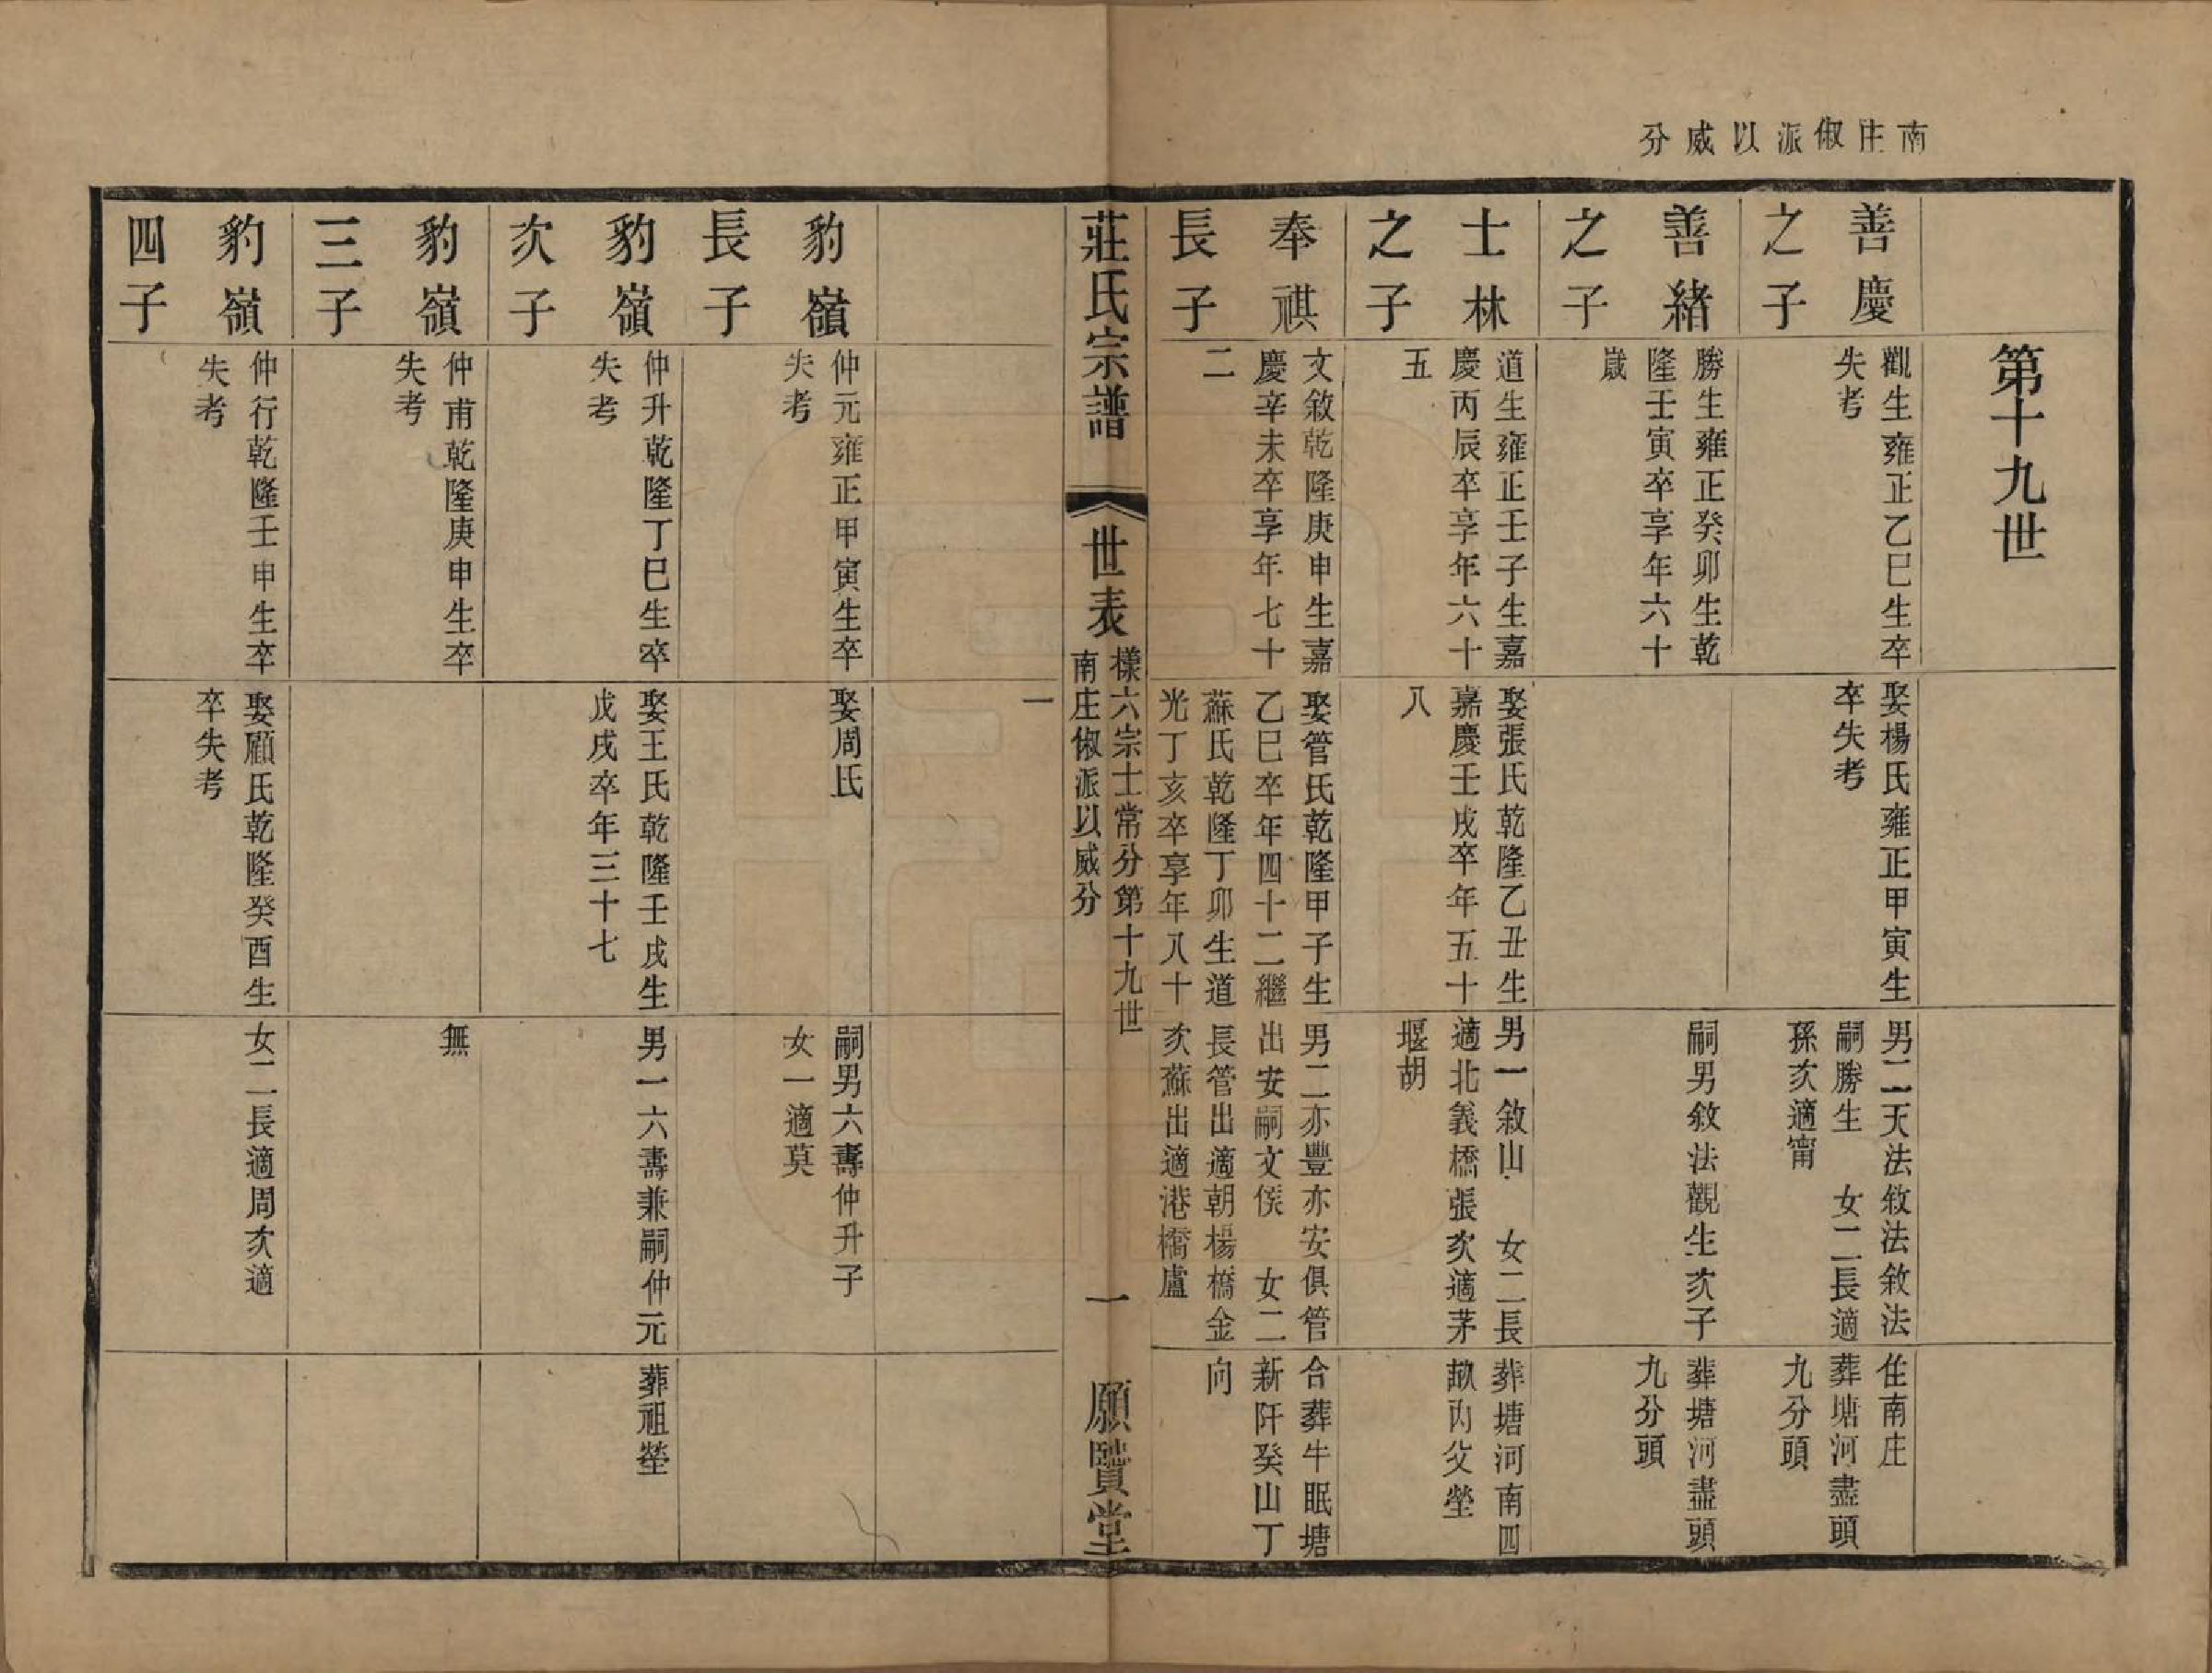 南庄俶派以威分
第十九世
善慶
之子
觀生雍正乙巳生卒
失考
娶楊氏雍正甲寅生
卒失考
男二天法敘法敘法
嗣勝生　女二長適
孫次適甯
住南庄
葬塘河盡頭
九分頭
善緒
之子
勝生雍正癸卯生乾
隆壬寅卒享年六十
歲
嗣男敘法觀生次子
葬塘河盡頭
九分頭
士林
之子
道生雍正壬子生嘉
慶丙辰卒享年六十
五
娶張氏乾隆乙丑生
嘉慶壬戌卒年五十
八
男一敘山　女二長
適北義橋張次適茅
堰胡
葬塘河南四
畝內父塋
奉祺
長子
文敘乾隆庚申生嘉
慶辛未卒享年七十
二
娶管氏乾隆甲子生
乙巳卒年四十二繼
蘇氏乾隆丁卯生道
光丁亥卒享年八十
一
男二亦豐亦安俱管
出安嗣文侯　女二
長管出適朝楊橋金
次蘇出適港橋盧
合葬牛眠塘
新阡癸山丁
向
莊氏宗譜
世表
樣六宗士常分第十九世
南庄俶派以威分
一
願賢堂
豹嶺
長子
仲元雍正甲寅生卒
失考
娶周氏
嗣男六壽仲升子
女一適莫
豹嶺
次子
仲升乾隆丁巳生卒
失考
娶王氏乾隆壬戌生
戊戌卒年三十七
男一六壽兼嗣仲元
葬祖塋
豹嶺
三子
仲甫乾隆庚申生卒
失考
無
豹嶺
四子
仲行乾隆壬申生卒
失考
娶顧氏乾隆癸酉生
卒失考
女二長適周次適